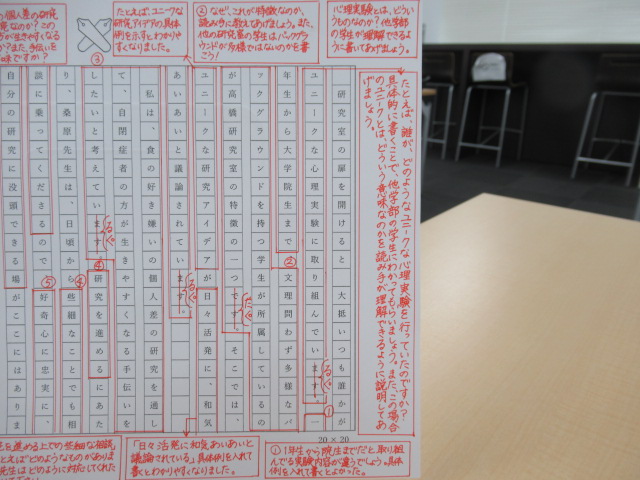 の個人差の研究
たとえば、ユニークな
研究アイデアの具体
例を示すとわかりや
すくなりました。
②なぜ、これが特徴なのか、
読み手に教えてあげましょう。また、
他の研究室の学生はバックグラ
ウンドが多様ではないのかを書
こう!
心理実験とは、どうい
うものなのか?他学部
の学生が理解できるよ
うに書いてあげましょう。
たとえば、誰が、どのようなユニークな心理実験を行っていたのですか?
具体的に書くことで、他学部の学生にわかってもらいましょう。また、この場合
のユニークとは、どういう意味なのかを読み手が理解できるように説明してあ
げましょう。
研究室の扉を開けると 大抵いつも誰かが
ユニークな心理実験に取り組んでいます。一
年生から大学院生まで 文理問わず多様なバ
ックグラウンドを持つ学生が所属しているの
が高橋研究室の特徴の一つです。そこでは、
ユニークな研究アイデアが日々活発に、和気
あいあいと議論されています。
私は、食の好き嫌いの個人差の研究を通し
て、自閉症者の方が生きやすくなる手伝いを
したいと考えています。研究を進めるにあた
り、桑原先生は、日頃から些細なことでも相
談に乗ってくださるので 好奇心に忠実に、
自分の研究に没頭できる場がここにはありま
③
②
①
④
④
⑤
20×20
を進める上での些細な相談、
とえばどのようなものがありま
先生はどのように対応してくれた
「日々活発に和気あいあいと
議論されている」具体例を入れて
書くとわかりやすくなりました。
①1年生から院生までだと取り組
んでる実験内容が違うでしょう。具体
例を入れて書くとよかった。